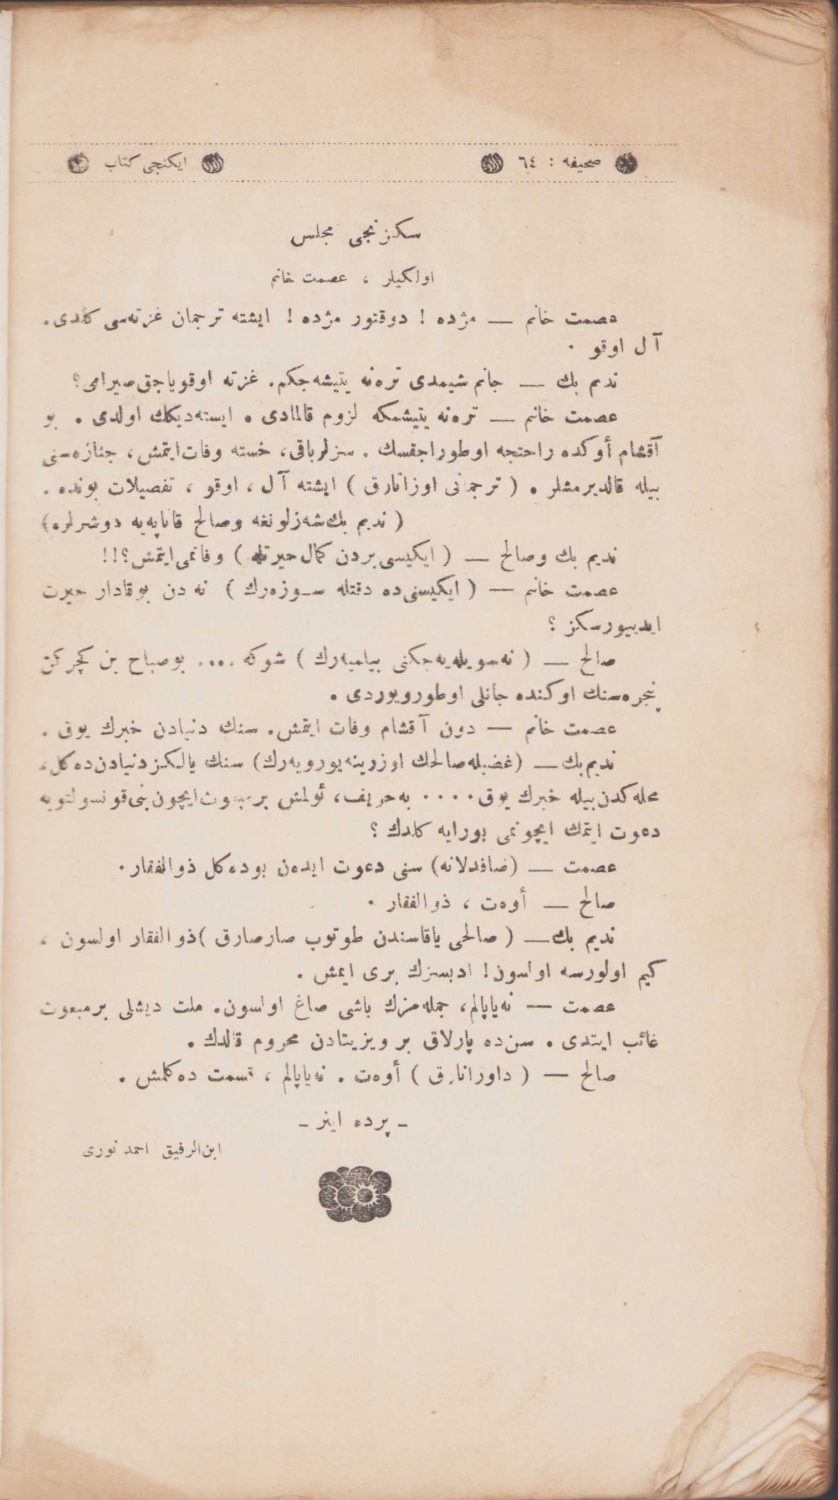 صحیفه : ٦٤ ایكنجی كتاب
سكزنجی مجلس
اولكیلر ، عصمت خانم
عصمت خانم — مژده ! دوقتور مژده ! ایشته ترجمان غزته‌سی كلدی.
آل اوقو .
ندیم بك — جانم شیمدی ترەنه یتیشه‌جكم. غزته اوقویاجق صیرامی؟
عصمت خانم — ترەنه یتیشمكه لزوم قالمادی . ایسته‌دیكك اولدی . بو
آقشام أوكده راحتجه اوطوراجقسك . سزلر باقی، خسته وفات ایتمش، جنازه‌سنی
بیله قالدیرمشلر . ( ترجمانی اوزاتارق ) ایشته آل ، اوقو ، تفصیلات بونده .
( ندیم بك شه‌زلونغه وصالح قاناپه‌یه دوشرلر.)
ندیم بك وصالح — ( ایكیسی بردن كمال حیرتله ) وفاتمی ایتمش؟!!
عصمت خانم — ( ایكیسنی‌ده دقتله سوزه‌رك ) نه دن بوقادار حیرت
ایدییورسكز ؟
صالح — ( نه‌سویله‌یه‌جكنی بیلمیه‌رك ) شوكه .... بوصباح بن كچركن
پنجره‌سنك اوكنده جانلی اوطورویوردی .
عصمت خانم — دون آقشام وفات ایتمش. سنك دنیادن خبرك یوق .
ندیم بك — (غضبله صالحك اوزرینه یورویه‌رك) سنك یالكز دنیادن ده‌كل،
محله‌كدن بیله خبرك یوق .... به‌حریف، ئولمش برمبعوث ایچون بنی قونسولتویه
دعوت ایتمك ایچونمی بورایه كلدك ؟
عصمت — (صافدلانه) سنی دعوت ایدەن بوده‌كل ذوالفقار.
صالح — أوەت ، ذوالفقار .
ندیم بك — ( صالحی یاقاسندن طوتوب صارصارق )ذوالفقار اولسون ،
كیم اولورسه اولسون! ادبسزك بری ایمش .
عصمت — نه‌یاپالم، جمله‌مزك باشی صاغ اولسون. ملت دیشلی برمبعوث
غائب ایتدی . سن‌ده پارلاق بر ویزیتادن محروم قالدك .
صالح — ( داورانارق ) أوەت . نه‌یاپالم ، قسمت ده‌كلمش .
ـ پرده اینر ـ
ابن‌الرفیق احمد نوری